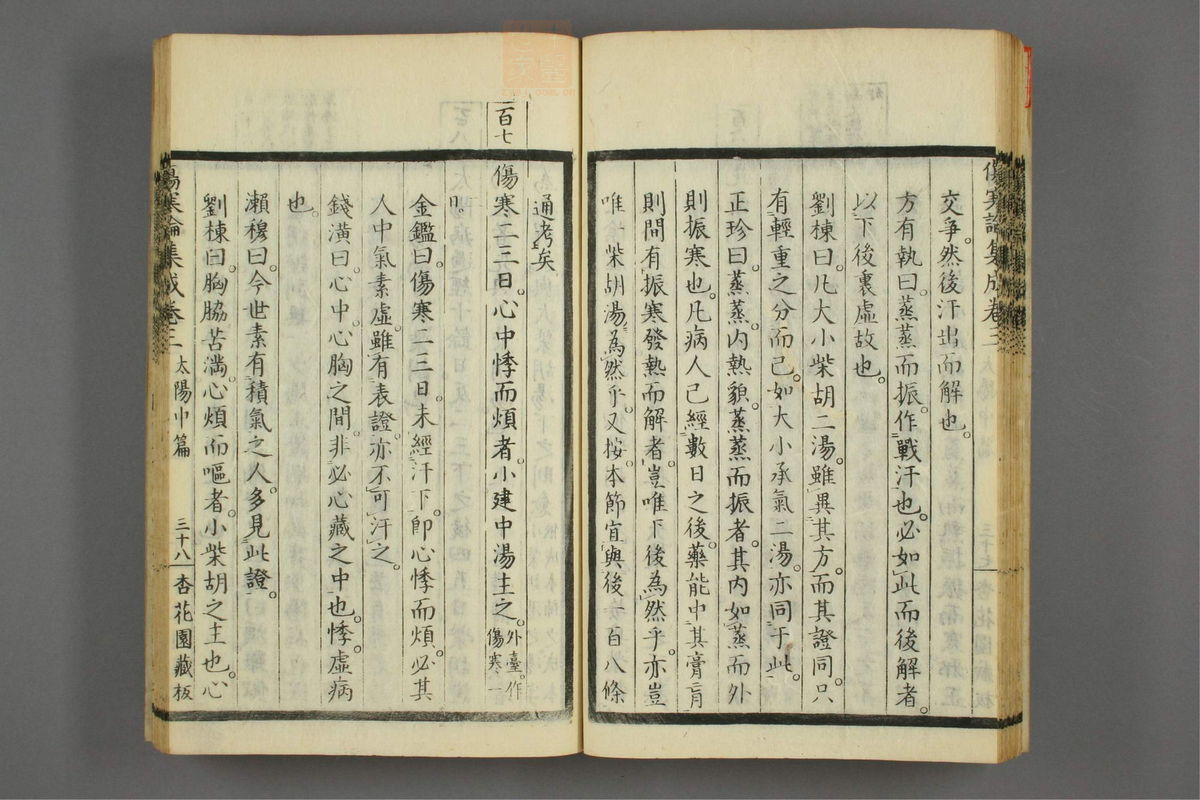 傷寒論集成卷三
交爭。然後汗出而解也。
方有執曰。蒸蒸而振。作戰汗也。必如此而後解者。
以下後裏虛故也。
劉棟曰。凡大小柴胡二湯。雖異其方。而其證同。只
有輕重之分而已。如大小承氣二湯。亦同于此。
正珍曰。蒸蒸。內熱貌。蒸蒸而振者。其內如蒸而外
則振寒也。凡病人已經數日之後。藥能中其膏肓
則間有振寒發熱而解者。豈唯下後為然乎。亦豈
唯一柴胡湯為然乎。又按。本節宜與後一百八條
通考矣
百七 傷寒二三日。心中悸而煩者。小建中湯主之。外臺。作傷寒一
日。
金鑑曰。傷寒二三日。未經汗下。卽心悸而煩。必其
人中氣素虛。雖有表證。亦不可汗之。
錢潢曰。心中。心胸之間。非必心藏之中也。悸。虛病
也。
瀨穆曰。今世素有積氣之人。多見此證。
劉棟曰。胸脇苦滿。心煩而嘔者。小柴胡之主也。心
傷寒論集成卷三 太陽中篇 三十八 杏花園藏板